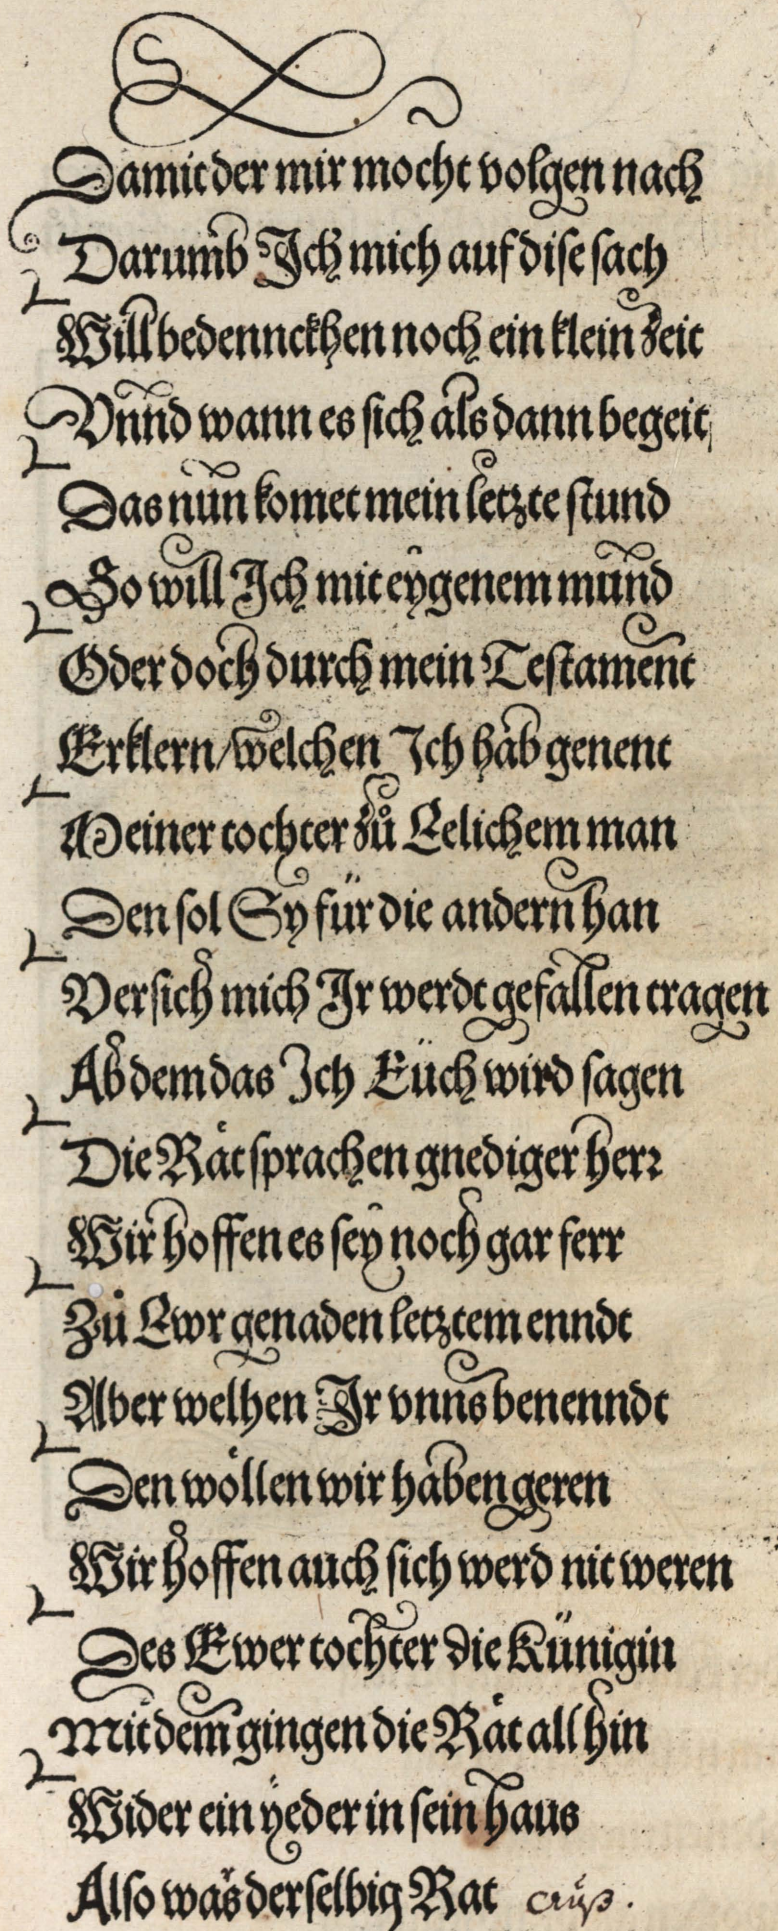 Damit der mir mocht volgen nach
Darumb Ich mich auf dise sach
Will bedennckhen noch ein klein zeit
Vnnd wann es sich als dann begeit,
Das nun komet mein letzte stund
So will Ich mit eygenem mund
Oder doch durch mein Testament
Erklern/welchen Ich hab genent
Meiner tochter zů Eelichem man
Den sol Sy für die andern han
Versich mich Ir werdt gefallen tragen
Ab dem das Ich Eüch wird sagen
Die Rät sprachen gnediger herr
Wir hoffen es sey noch gar ferr
Zů Ewr genaden letztem enndt
Aber welhen Ir vnns benenndt
Den wöllen wir haben geren
Wir hoffen auch sich werd nit weren
Des Ewer tochter die Künigin
Mit dem gingen die Rät all hin
Wider ein yeder in sein haus
Also was derselbig Rat auß.